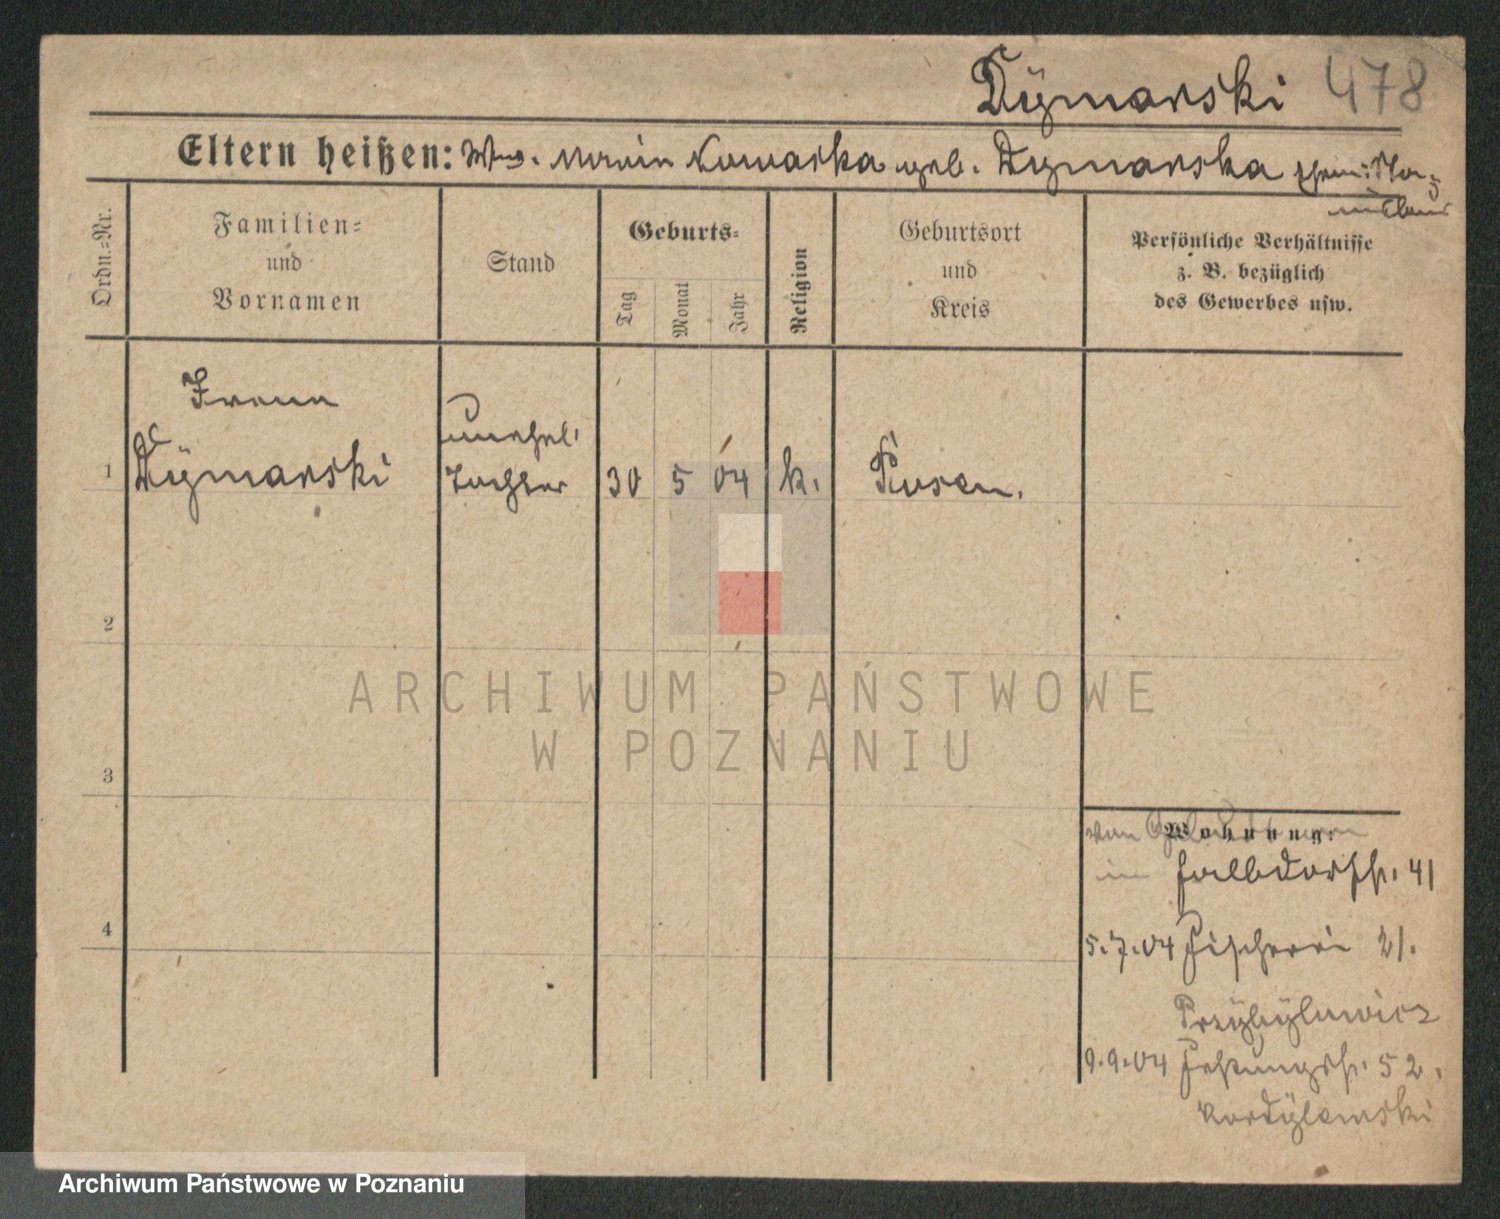 Dÿmarski 478
Eltern heißen: Wwe. Maria Nowacka geb. Dymarska
Ordn.=Nr.
Familien=
und
Vornamen
Stand
Geburts=
Tag
Monat
Jahr
Religion
Geburtsort
und
Kreis
Persönliche Verhältnisse
z. B. bezüglich
des Gewerbes usw.
Irena
unehel.
1 Dÿmarski Tochter 30 5 04 k. Posen.
2
3
4
Wohnung:
Halbdorfstr. 41
5.7.04 Fischerei 21.
Przÿbÿlowicz
9.9.04 Festungsstr. 52.
Kordylewski
ARCHIWUM PAŃSTWOWE
W POZNANIU
Archiwum Państwowe w Poznaniu